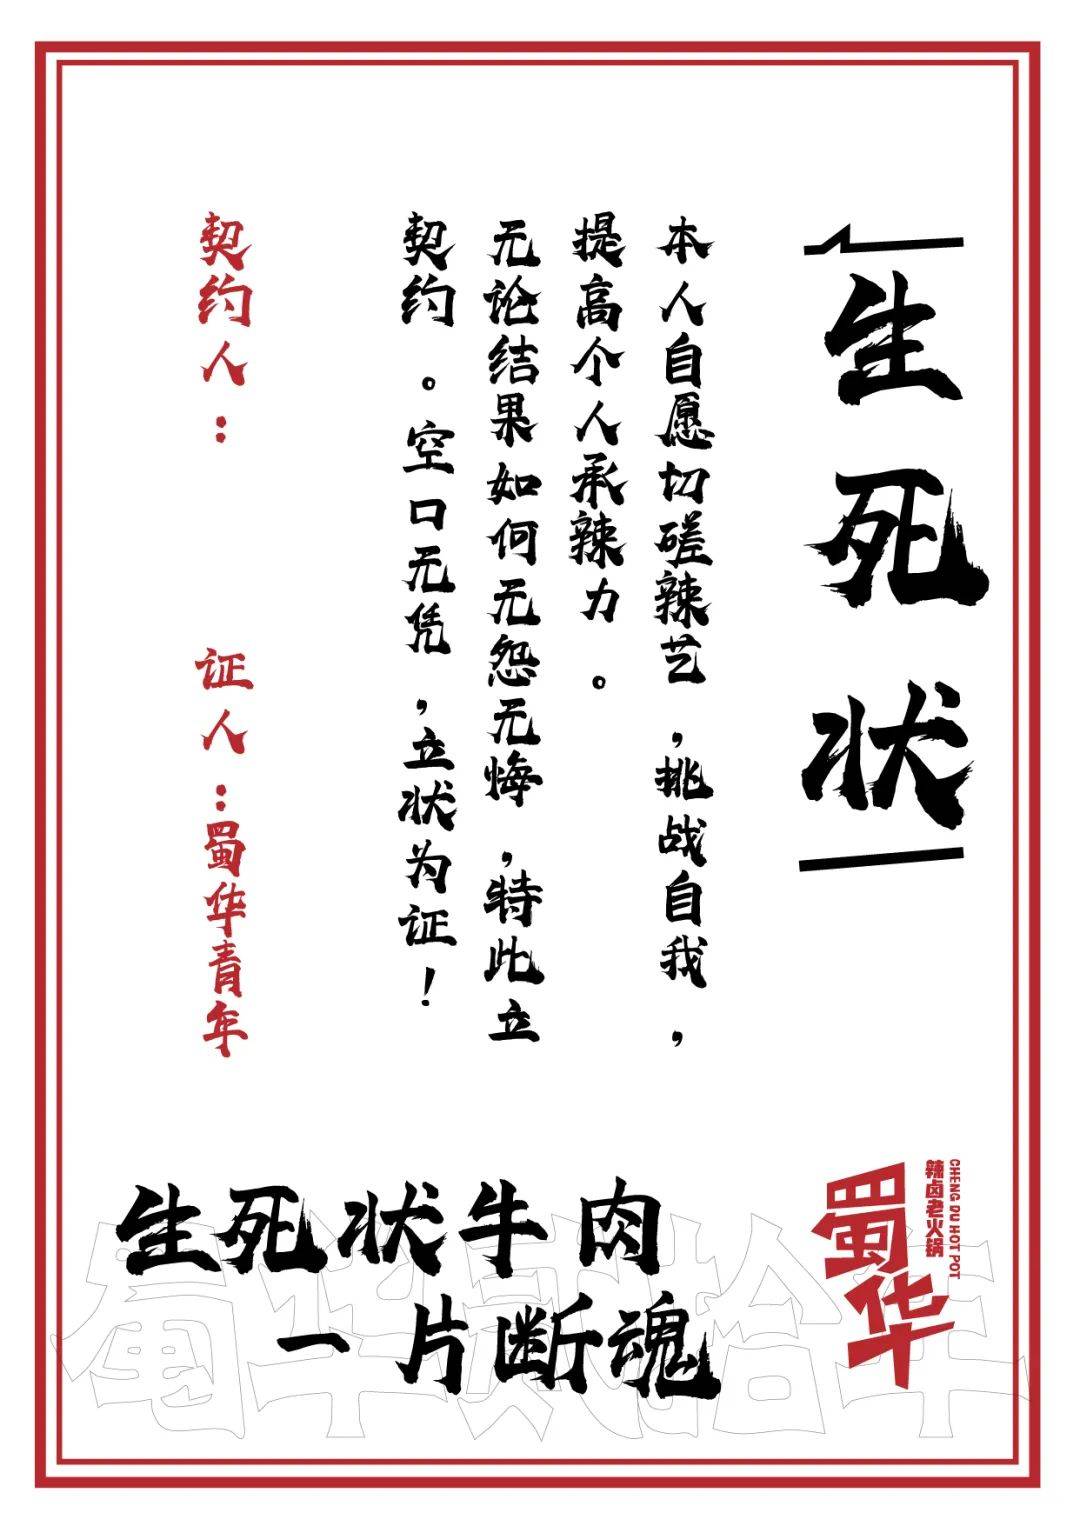 生死状
本人自愿切磋辣艺，挑战自我，
提高个人承辣力。
无论结果如何无怨无悔，特此立
契约。空口无凭，立状为证！
契约人：
证人：蜀华青年
生死状牛肉
一片断魂
蜀华
辣卤老火锅
CHENG DU HOT POT
蜀华贰拾年